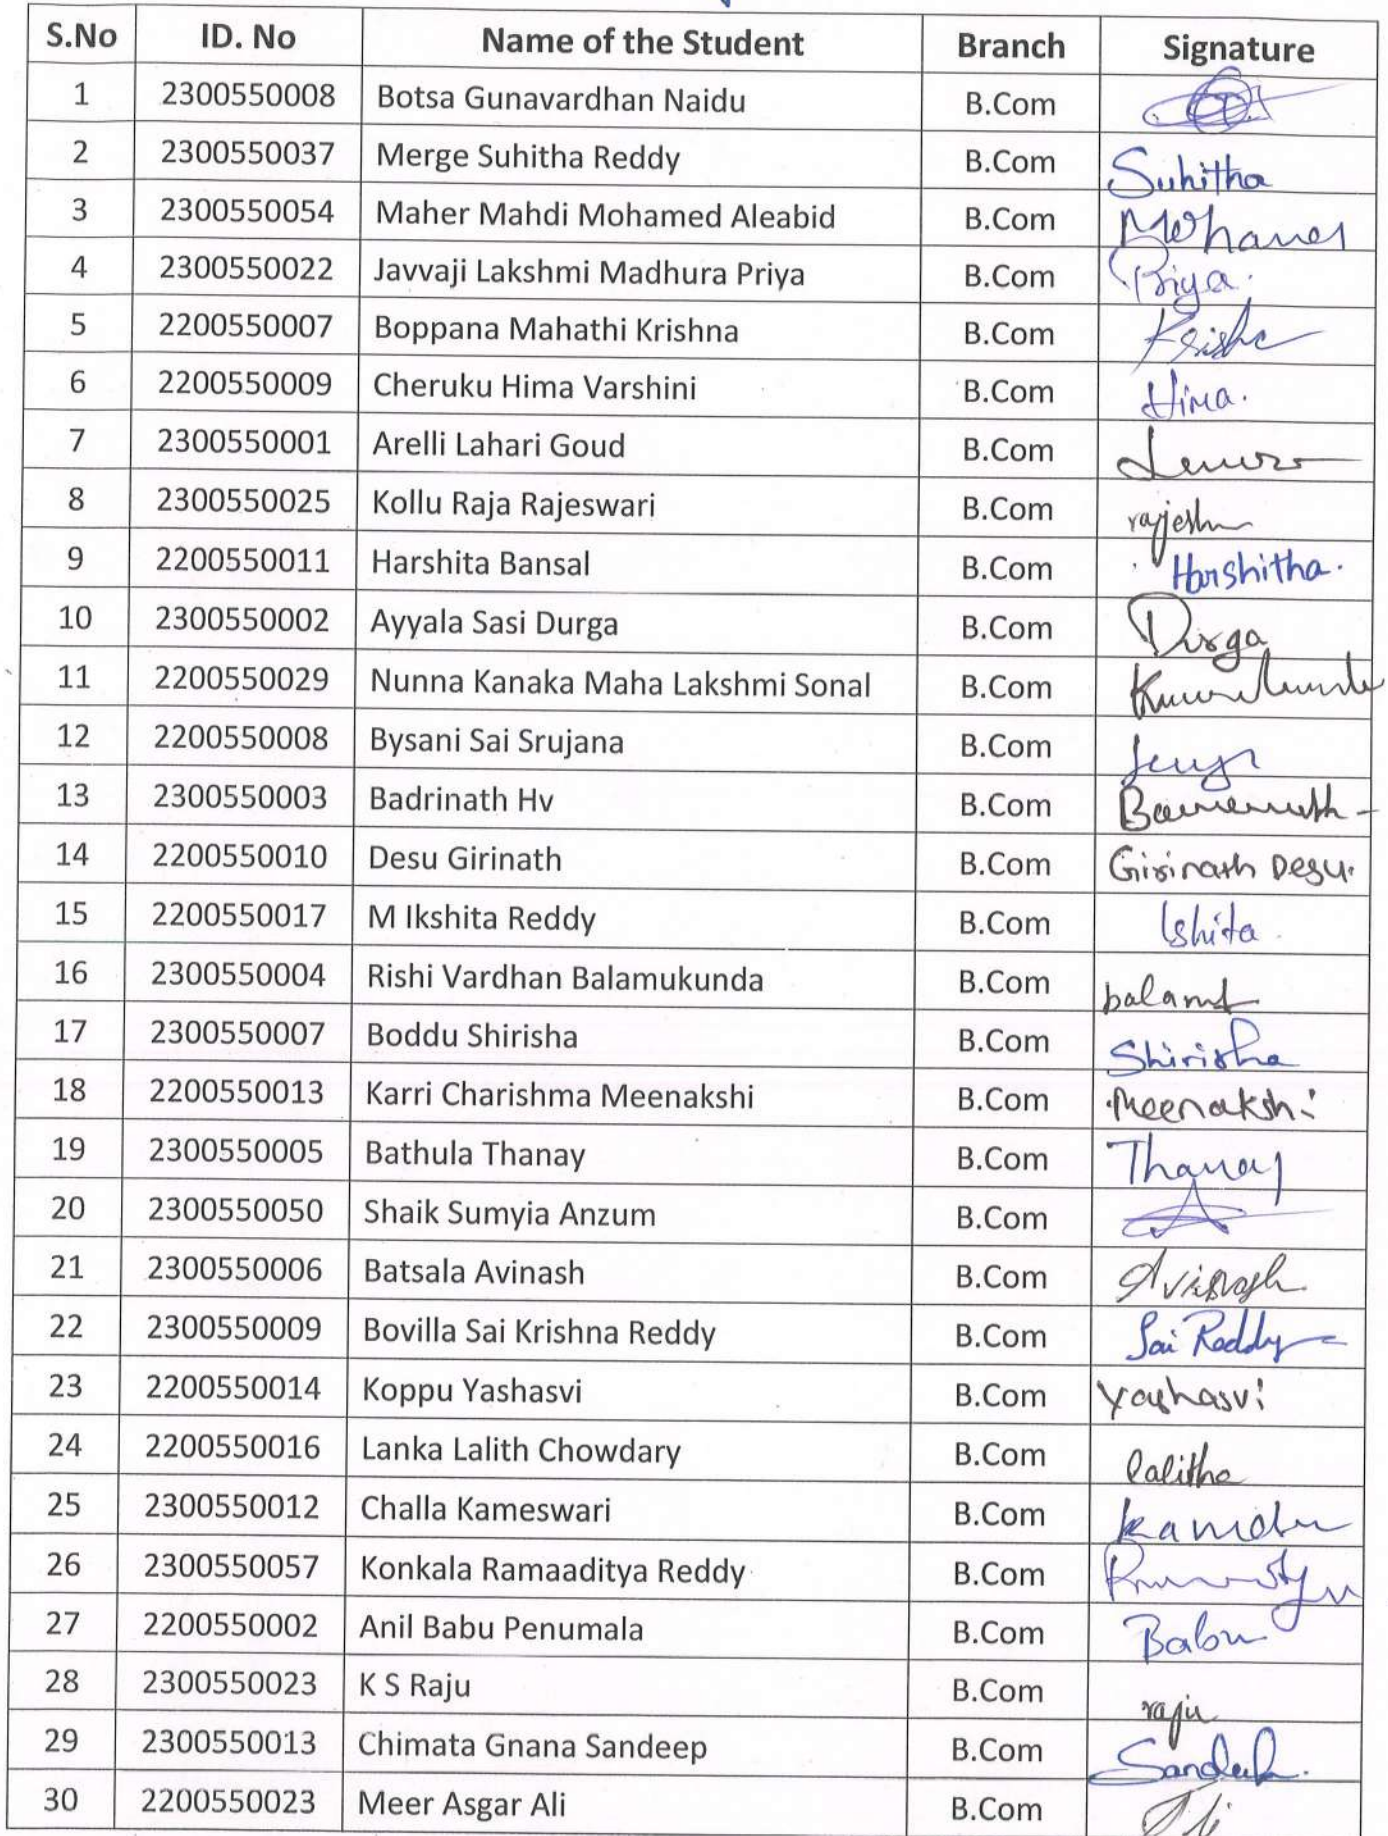 S.No ID. No Name of the Student Branch Signature
1 2300550008 Botsa Gunavardhan Naidu B.Com
2 2300550037 Merge Suhitha Reddy B.Com Suhitha
3 2300550054 Maher Mahdi Mohamed Aleabid B.Com
4 2300550022 Javvaji Lakshmi Madhura Priya B.Com Priya.
5 2200550007 Boppana Mahathi Krishna B.Com
6 2200550009 Cheruku Hima Varshini B.Com Hima.
7 2300550001 Arelli Lahari Goud B.Com
8 2300550025 Kollu Raja Rajeswari B.Com
9 2200550011 Harshita Bansal B.Com Harshitha.
10 2300550002 Ayyala Sasi Durga B.Com Durga
11 2200550029 Nunna Kanaka Maha Lakshmi Sonal B.Com
12 2200550008 Bysani Sai Srujana B.Com
13 2300550003 Badrinath Hv B.Com
14 2200550010 Desu Girinath B.Com Girinath Desu.
15 2200550017 M Ikshita Reddy B.Com Ishita
16 2300550004 Rishi Vardhan Balamukunda B.Com
17 2300550007 Boddu Shirisha B.Com Shirisha
18 2200550013 Karri Charishma Meenakshi B.Com Meenakshi
19 2300550005 Bathula Thanay B.Com Thanay
20 2300550050 Shaik Sumyia Anzum B.Com
21 2300550006 Batsala Avinash B.Com Avinash
22 2300550009 Bovilla Sai Krishna Reddy B.Com Sai Reddy
23 2200550014 Koppu Yashasvi B.Com Yashasvi
24 2200550016 Lanka Lalith Chowdary B.Com lalitha
25 2300550012 Challa Kameswari B.Com
26 2300550057 Konkala Ramaaditya Reddy B.Com
27 2200550002 Anil Babu Penumala B.Com Babu
28 2300550023 K S Raju B.Com raju
29 2300550013 Chimata Gnana Sandeep B.Com
30 2200550023 Meer Asgar Ali B.Com